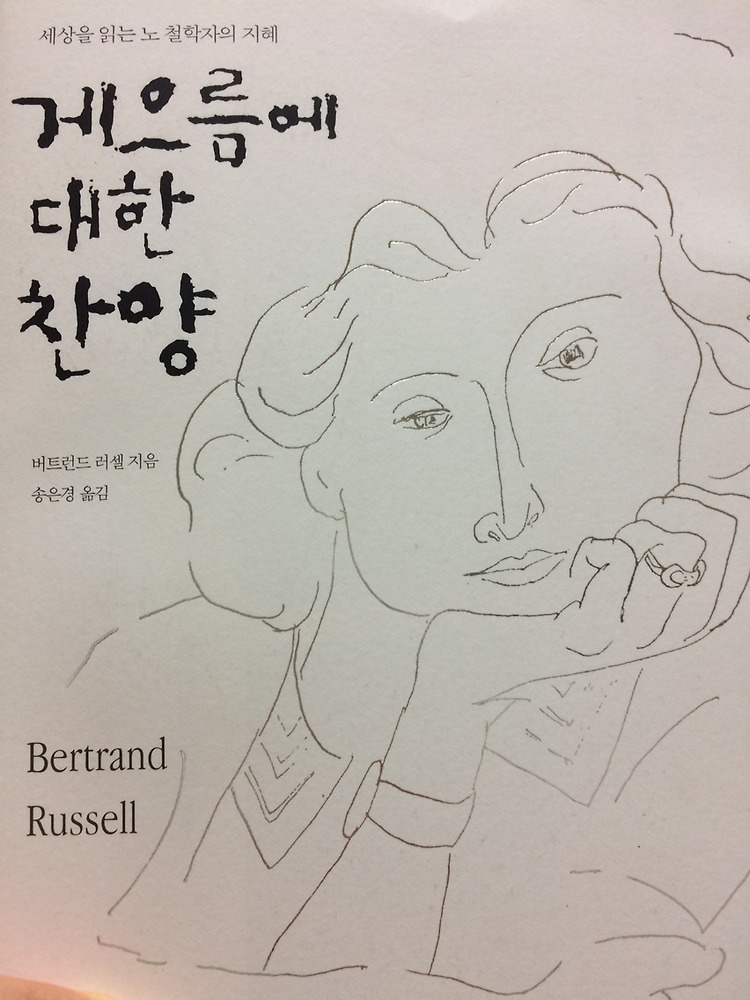 세상을 읽는 노 철학자의 지혜
게으름에
대한
찬양
버트런드 러셀 지음
송은경 옮김
Bertrand
Russell